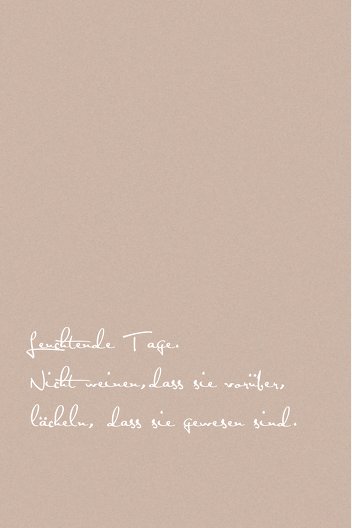 Leuchtende Tage.
Nicht weinen, dass sie vorüber,
lächeln, dass sie gewesen sind.